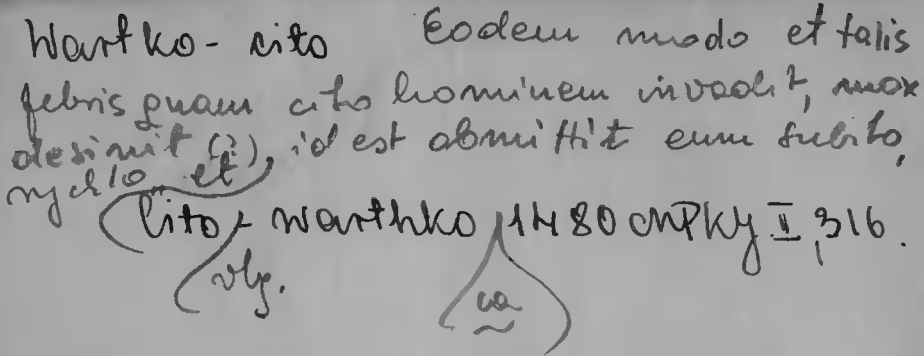 Wartko - cito Eodem modo et talis
febris quam cito hominem invadit, mox
desinit (?), id est abmittit eum subito,
rychlo, et
cito - warthko, 1480 MPKJ II, 316.
vlg.
ca